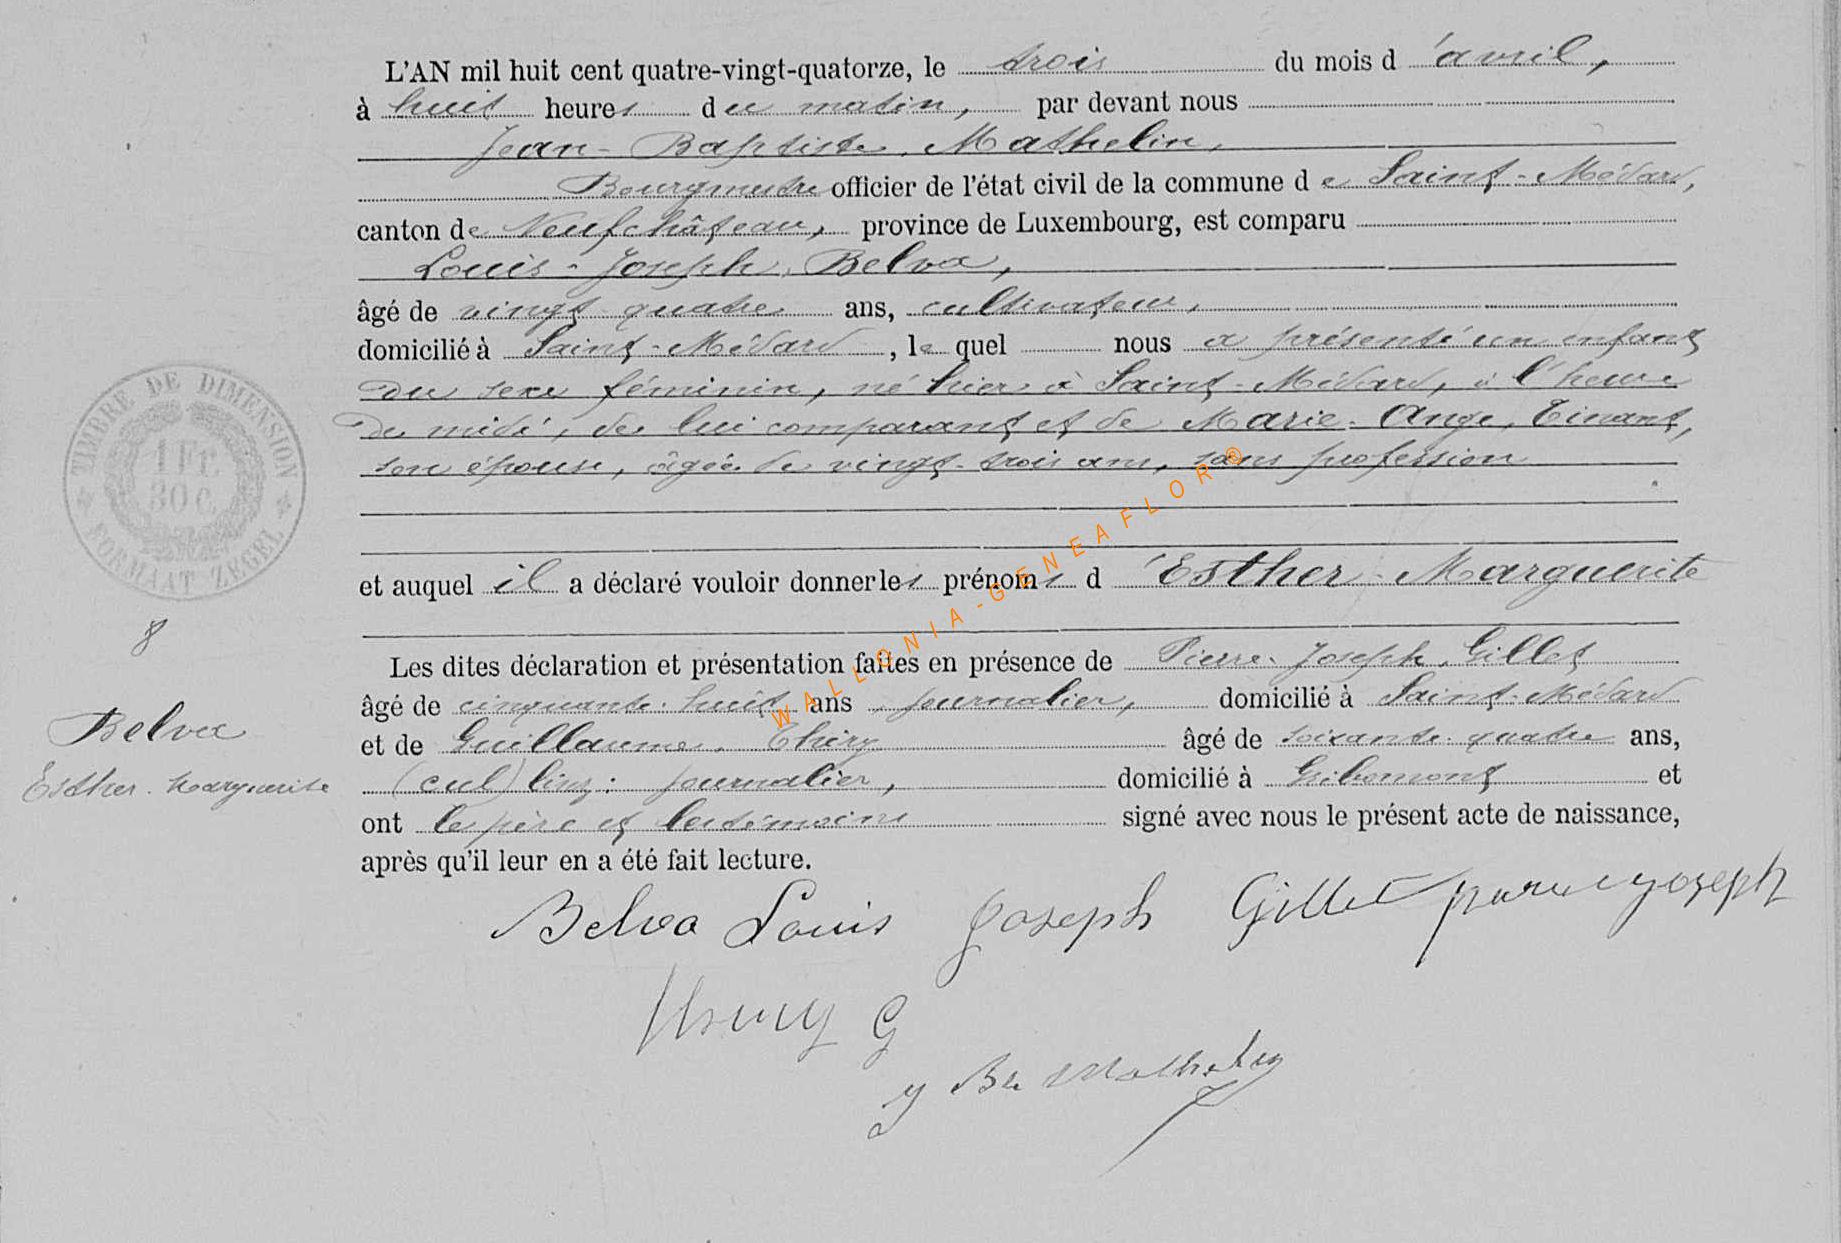 L'AN mil huit cent quatre-vingt-quatorze, le trois du mois d'avril,
à huit heures du matin, par devant nous
Jean-Baptiste Mathelin,
Bourgmestre officier de l'état civil de la commune de Saint-Médard,
canton de Neufchâteau, province de Luxembourg, est comparu
Louis-Joseph Belva,
âgé de vingt-quatre ans, cultivateur,
domicilié à Saint-Médard, lequel nous a présenté un enfant
du sexe féminin, né hier à Saint-Médard, à l'heure
de midi, de lui comparant et de Marie-Ange Tinant,
son épouse, âgée de vingt-trois ans, sans profession
et auquel il a déclaré vouloir donner les prénoms d'Esther-Marguerite
Les dites déclaration et présentation faites en présence de Pierre-Joseph Gillet
âgé de cinquante-huit ans, journalier, domicilié à Saint-Médard
et de Guillaume Thiry âgé de soixante-quatre ans,
journalier, domicilié à Gribomont et
ont le père et les témoins signé avec nous le présent acte de naissance,
après qu'il leur en a été fait lecture.
Belva Louis Joseph Gillet
Thiry G
Mathelin
TIMBRE DE DIMENSION
1 Fr.
30 C.
FORMAAT ZEGEL
8
Belva
Esther-Marguerite
WALLONIA-GENEAFLOR®